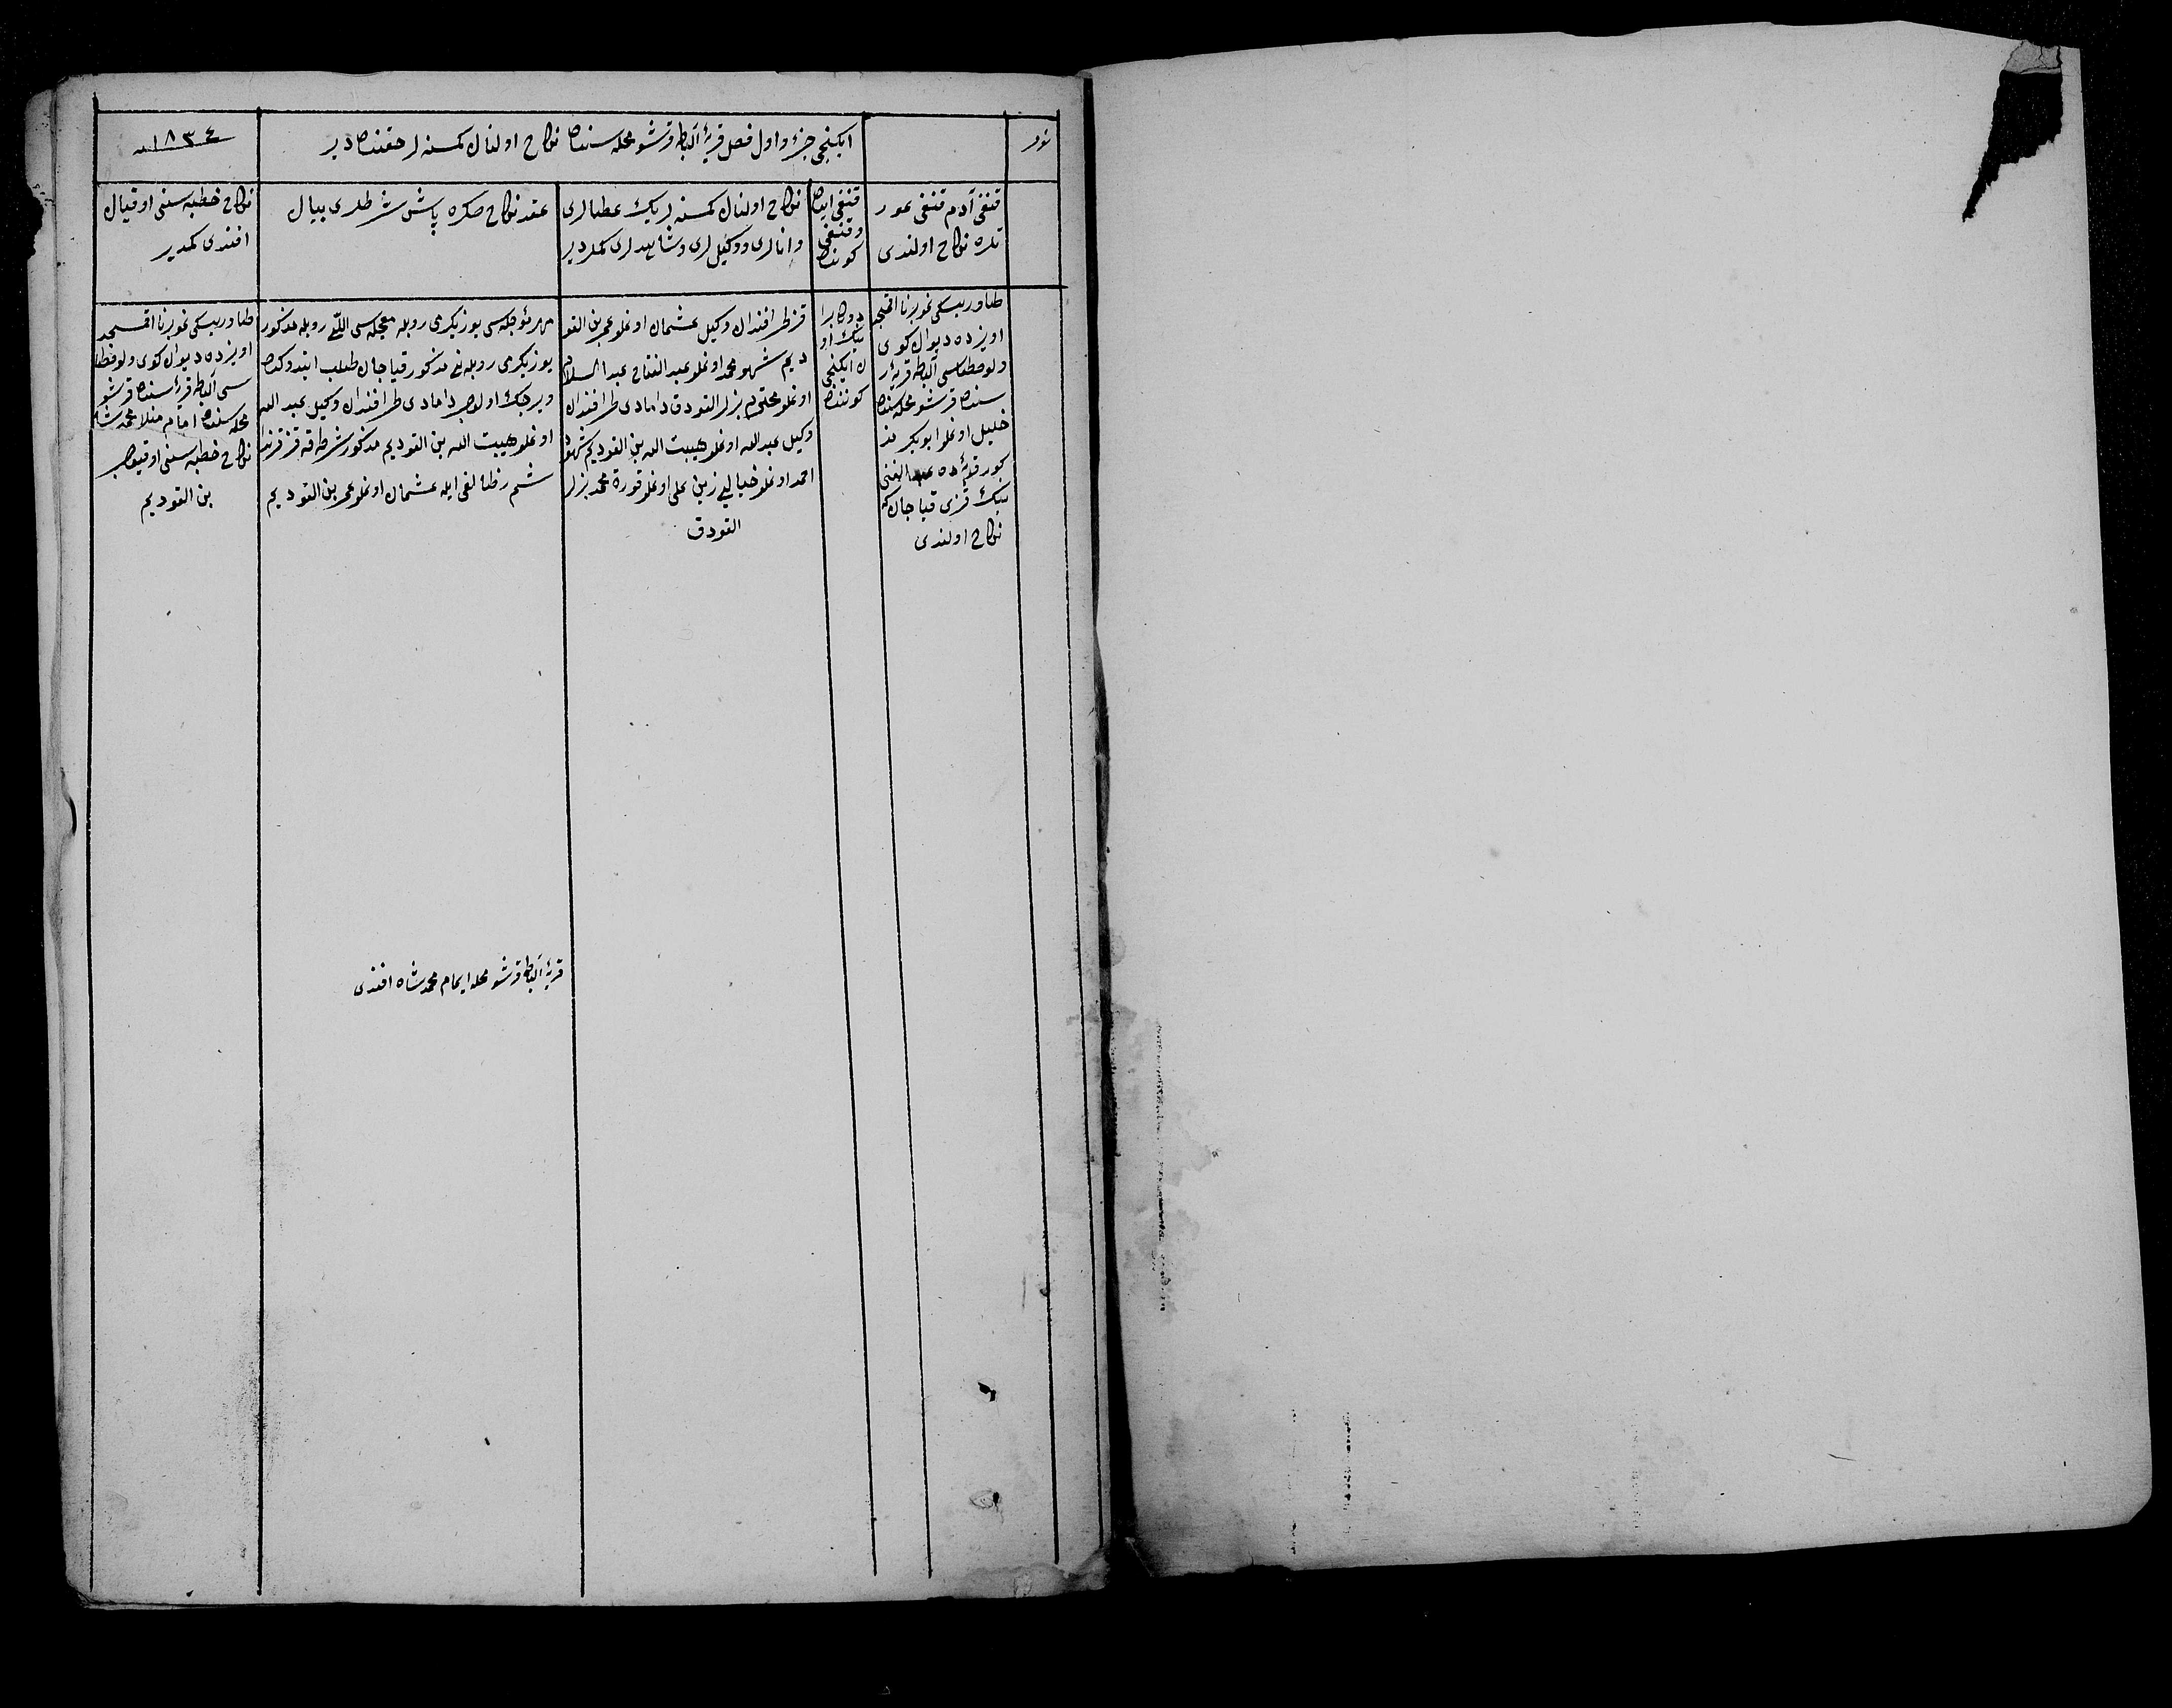 ایکنجی جزؤ و اول فصل قریۀ آلباط قرشو محله سنده نکاح اولنان کمسنه لر حقنده در
١٨٣٤ سنه
قنغی آدم قنغی عور
تله نکاح اولندی
قنغی ایده
و قنغی
کونده
نکاح اولنان کمسنه لرینك عطالری
و انالری و وکیل لری و شاهد لری کملردیر
عقد نکاح صکره یاش شرطلری بیان
نکاح خطبه سنی اوقیان
افندی کمدیر
طاوریسکی غوبرنا اقمیجد
اویزده دیوان کوی
ولوصطسی آلباط قریۀ
سنده قرشو محله سنده
خلیل اوغلو ابو بکر مذ
کور قریۀ ده عبد الغنی
بیك قزی قیا جان
نکاح اولندی
ن ایکنجی
کوننده
قز طرافندان وکیل عثمان اوغلو عمر بن القو
دیم شهود محمد اوغلو عبد الفتاح عبد السلام
اوغلو بزلر القودق دامادی طرافندان
وکیل عبد الله اوغلو هیبت الله بن القودیم شهود
احمد اوغلو زین علی اوغلو محمد بزلر
القودق
مهر مؤجله سی یوز یکرمی روبله معجله سی اللی روبله مذکور
یوز یکرمی روبله نی مذکور قیا جان طلب ایتدوکده
ویرجك اولوب دامادی طرافندان وکیل عبد الله
اوغلو هیبت الله بن القودیم مذکور شرطقه قز قرندا
شم رظالغی ایله عثمان اوغلو عمر بن القودیم
طاوریسکی غوبرنا اقمسجد
اویزده دیوان کوی ولوصط
سی آلباط قریۀ سنده قرشو
محله سنده امام منلا محمد شاه
نکاح خطبه سنی اوقیوب
بن القودیم
قریۀ آلباط قرشو محله ایمام محمد شاه افندی